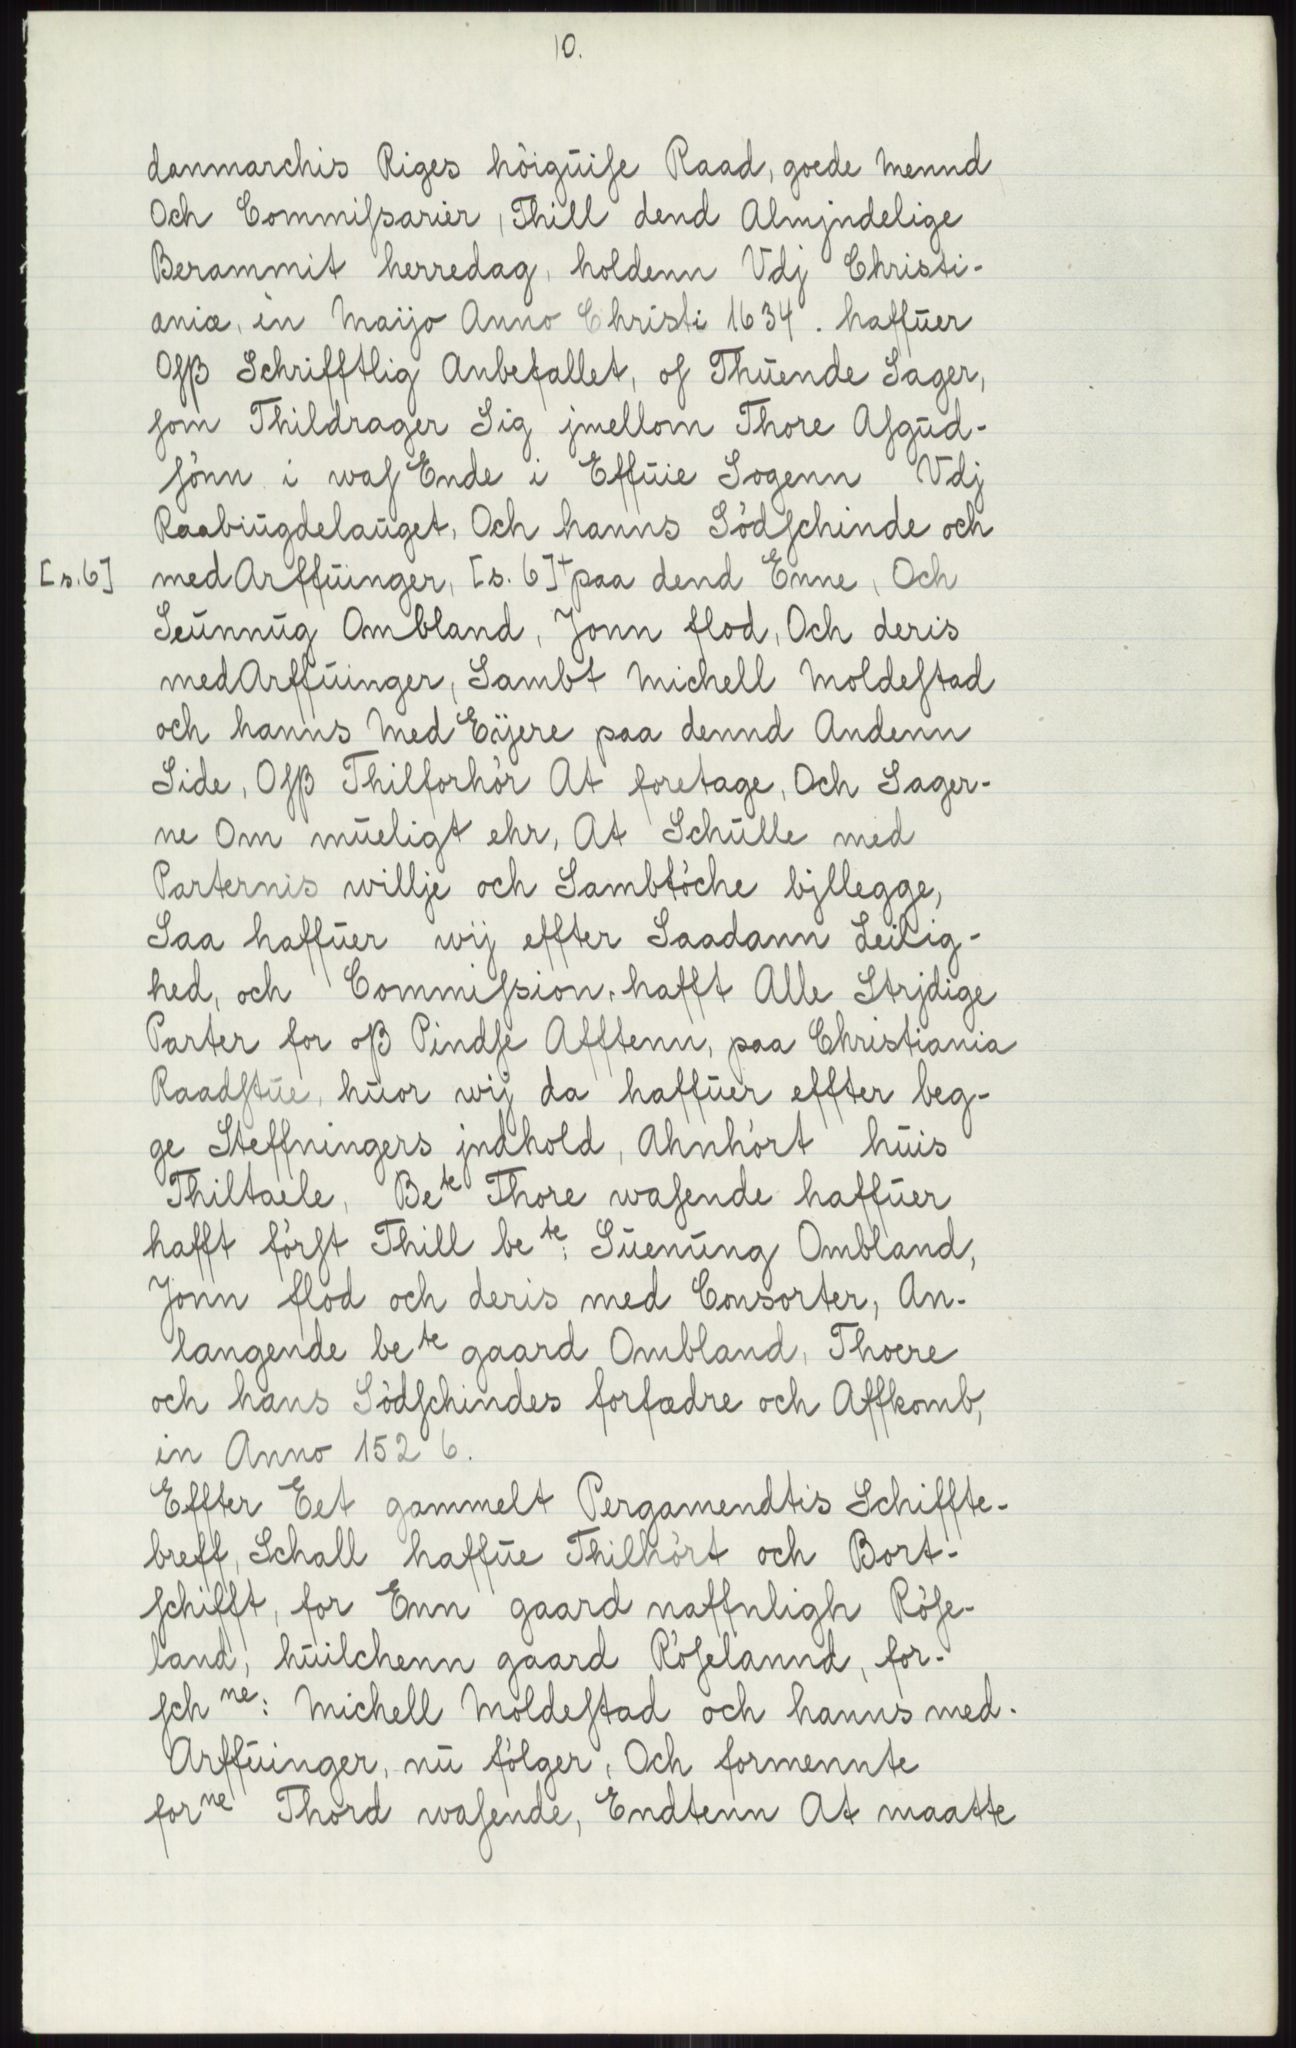 10.
danmarchis Riges höigūiſe Raad, goede Mennd
Och Commiſsarier, Thill dend Almjndelige
Berammit herredag, holdenn Vdj Christi-
aniæ, in Maijo Anno Christi 1634. haffūer
Oſß Schrifftlig Anbefallet, oſ Thūende Sager,
ſom Thildrager Sig jmellom Thore Aſgūd-
ſönn i waſ Ende i Effūie Sogenn Vdj
Raabiūgdelaūget, Och hanns Södſchinde och
[s.6] medArffūinger, [s. 6]+ paa dend Enne, Och
Seūnnūg Ombland, Jonn flod, Och deris
medArffūinger, Sambt Michell Moldeſtad
och hanns Med Eÿere paa dennd Andenn
Side, Oſß Thilforhör At foretage, Och Sager-
ne Om mūeligt ehr, At Schūlle med
Parternis willje och Sambtöche bjllegge,
Saa haffūer wij effter Saadann Leilig-
hed, och Commiſsion, hafft Alle Strjdige
Parter for oß Pindſe Afftenn, paa Christiania
Raadſtūe, hūor wij da haffūer effter beg-
ge Steffningers jndhold, Ahnhört hūis
Thiltaele, Be te Thore waſende haffūer
hafft förſt Thill be te: Sūenūng Ombland,
Jonn flod och deris med Consorter, An-
langende be te gaard Ombland, Thoere
och hans Södſchindes forfædre och Affkomb,
in Anno 1526.
Effter Eet gammelt Pergamendtis Schiffte-
breff, Schall haffūe Thilhört och Bort-
ſchifft, for Enn gaard naffnligh Röſe-
land, hūilchenn gaard Röſelannd, for-
ſch ne: Michell Moldeſtad och hanns med-
Arffūinger, nū fölger, Och formennte
for ne Thord waſende, Endtenn At maatte